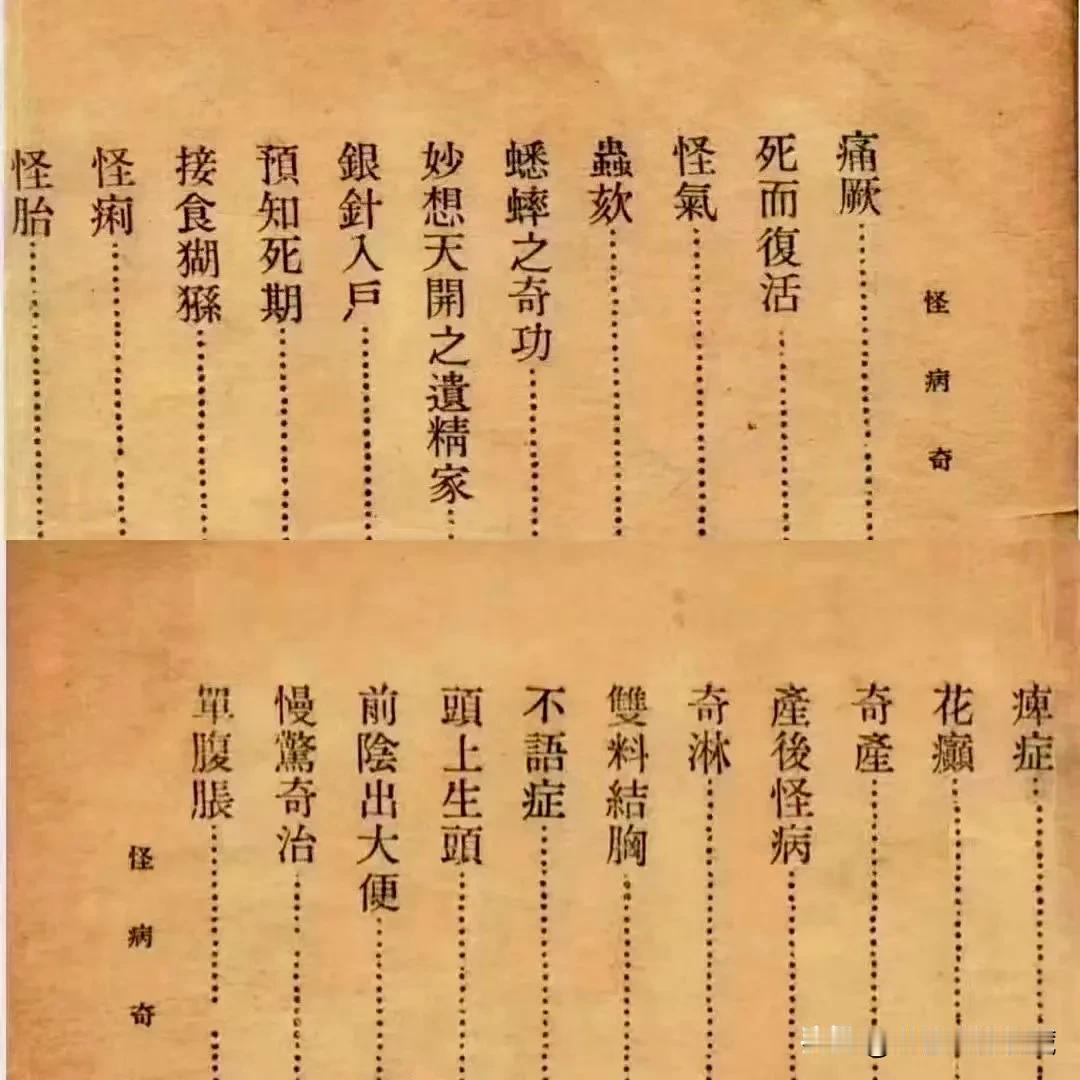 怪病奇
痛厥
死而復活
怪氣
蟲欬
蟋蟀之奇功
妙想天開之遺精家
銀針入戶
預知死期
接食猢猻
怪痢
怪胎
痺症
花癲
奇產
產後怪病
奇淋
雙料結胸
不語症
頭上生頭
前陰出大便
慢驚奇治
單腹脹
怪病奇